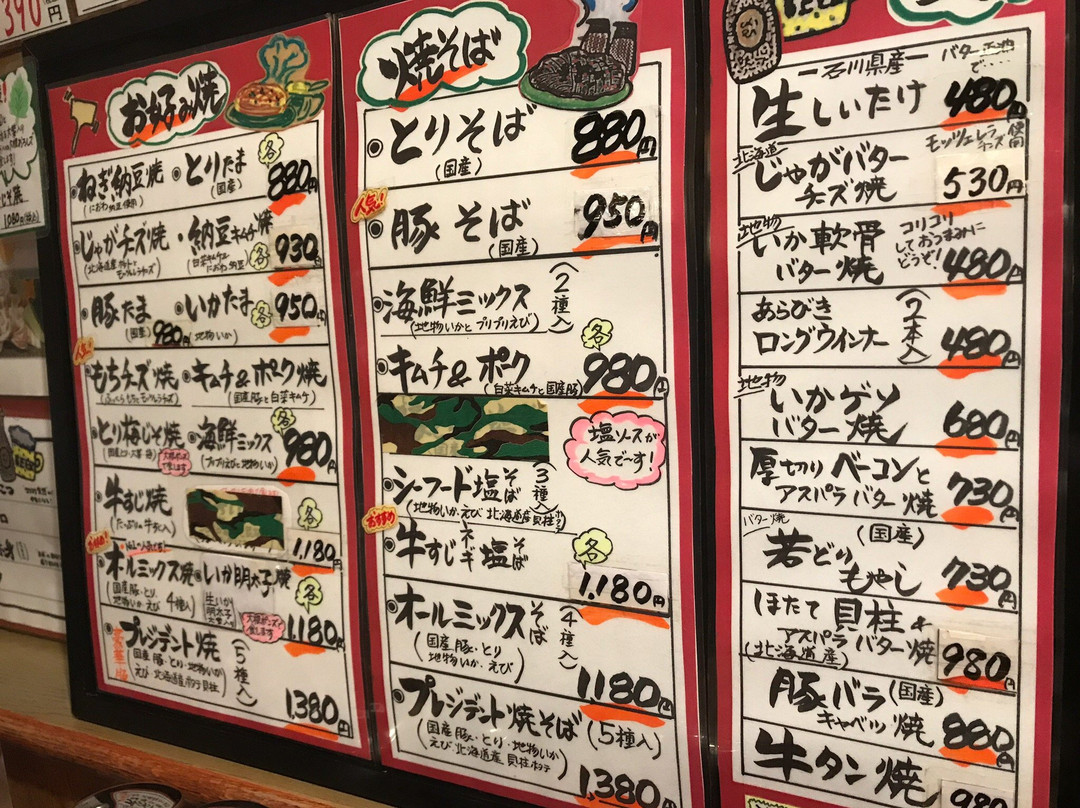 390円
1080円(税込)
お好み焼
ねぎ納豆焼 とりたま 各 880円
(国産)
じゃがチーズ焼 納豆キムチ焼 各 930円
豚たま いかたま 各 950円
(国産) 980円 地物いか
人気!
もちチーズ焼 キムチ&ポーク焼
(国産豚と白菜キムチ)
とり梅じそ焼 海鮮ミックス 各 980円
(プリプリえびと地物いか)
牛すじ焼 各 1,180円
オールミックス焼 いか明太子焼 各 1,180円
(国産豚・とり 地物いか・えび 4種入)
生いか
明太子
プレジデント焼 (5種入)
国産豚・とり・地物いか
えび・北海道産ホタテ貝柱
1,380円
焼そば
とりそば 880円
(国産)
人気!!
豚そば 950円
(国産)
海鮮ミックス (2種入)
(地物いかとプリプリえび)
キムチ&ポーク 各 980円
(白菜キムチと国産豚)
塩ソースが
人気で〜す!
シーフード塩そば (3種入)
おすすめ
牛すじネギ塩そば 各 1,180円
オールミックスそば (4種入)
(国産豚・とり
地物いか・えび)
1,180円
プレジデント焼そば (5種入)
(国産豚・とり・地物いか
えび・北海道産貝柱ホタテ)
1,380円
石川県産
生しいたけ 480円
北海道
じゃがバター
チーズ焼
モッツァレラチーズ使用
530円
地物
いか軟骨
バター焼
コリコリ
しておつまみに
どうぞ!
480円
あらびき
ロングウインナー (2本入) 480円
地物
いかゲソ
バター焼 680円
厚切りベーコンと
アスパラバター焼 730円
バター焼
若どり (国産)
もやし 730円
ほたて貝柱&
アスパラバター焼
(北海道産) 980円
豚バラ (国産)
キャベツ焼 880円
牛タン焼